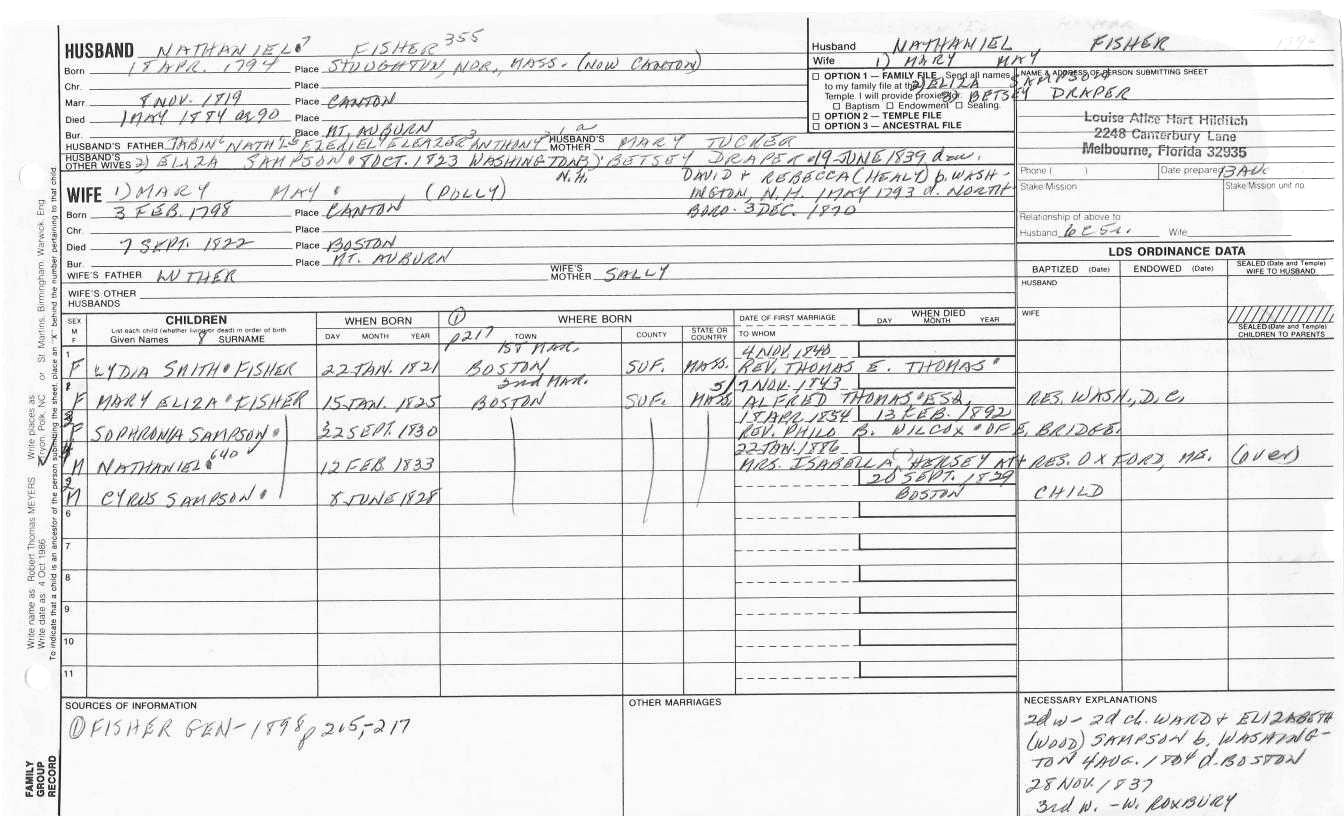 HUSBAND NATHANIEL 7 FISHER 355
Born 18 APR. 1794 Place STOUGHTON, NOR., MASS. (NOW CANTON)
Chr. Place
Marr. 8 NOV. 1819 Place CANTON
Died 1 MAY 1884 ae 90 Place
Bur. Place MT. AUBURN
HUSBAND'S FATHER JABIN NATH'L EZEKIEL ELEAZER 3 ANTHONY 2, 1, a HUSBAND'S MOTHER MARY TUCKER
HUSBAND'S OTHER WIVES 2) ELIZA SAMPSON 8 OCT. 1823 WASHINGTON 3) BETSEY DRAPER 19 JUNE 1839 dau.
N.H. DAVID + REBECCA (HEALY) b. WASH-
WIFE 1) MARY MAY (POLLY) INGTON, N.H. 1 MAY 1793 d. NORTH-
Born 3 FEB. 1798 Place CANTON BORO. 3 DEC. 1870
Chr. Place
Died 7 SEPT. 1822 Place BOSTON
Bur. Place MT. AUBURN
WIFE'S FATHER LUTHER WIFE'S MOTHER SALLY
WIFE'S OTHER HUSBANDS
Husband NATHANIEL FISHER
Wife 1) MARY MAY
2) ELIZA SAMPSON
3) BETSEY DRAPER
☐ OPTION 1 — FAMILY FILE Send all names
to my family file at the
Temple. I will provide proxies for
☐ Baptism ☐ Endowment ☐ Sealing
☐ OPTION 2 — TEMPLE FILE
☐ OPTION 3 — ANCESTRAL FILE
NAME & ADDRESS OF PERSON SUBMITTING SHEET
Louise Alice Hart Hilditch
2248 Canterbury Lane
Melbourne, Florida 32935
Phone ( ) Date prepared 13 AUG
Stake/Mission Stake/Mission unit no.
Relationship of above to
Husband 6C5r. Wife
LDS ORDINANCE DATA
BAPTIZED (Date) ENDOWED (Date) SEALED (Date and Temple) WIFE TO HUSBAND
HUSBAND
WIFE
SEALED (Date and Temple) CHILDREN TO PARENTS
SEX M F CHILDREN
List each child (whether living or dead) in order of birth
Given Names 8 SURNAME
WHEN BORN DAY MONTH YEAR
① p 217 WHERE BORN TOWN COUNTY STATE OR COUNTRY
DATE OF FIRST MARRIAGE TO WHOM
WHEN DIED DAY MONTH YEAR
1 1ST MAR. 4 NOV. 1840
F LYDIA SMITH FISHER 22 JAN. 1821 BOSTON SUF. MASS. REV. THOMAS E. THOMAS
2nd MAR. 5/7 NOV. 1843
F MARY ELIZA FISHER 15 JAN. 1825 BOSTON SUF. MASS ALFRED THOMAS ESQ. RES. WASH., D.C.
3 18 APR. 1854 13 FEB. 1892
F SOPHRONIA SAMPSON 22 SEPT. 1830 REV. PHILO B. WILCOX OF E. BRIDGE.
4 22 JAN. 1886
M NATHANIEL 640 12 FEB 1833 MRS. ISABELLA HERSEY RES. OXFORD, ME. (over)
2 20 SEPT. 1829
M CYRUS SAMPSON 8 JUNE 1828 BOSTON CHILD
6
7
8
9
10
11
SOURCES OF INFORMATION
① FISHER GEN-1898 p 215,-217
OTHER MARRIAGES
NECESSARY EXPLANATIONS
2d w - 2d ch. WARD + ELIZABETH
(WOOD) SAMPSON b. WASHING-
TON 4 AUG. 1804 d. BOSTON
28 NOV. 1837
3rd w. - W. ROXBURY
FAMILY GROUP RECORD
Write name as: Robert Thomas MEYERS Write places as: Tryon, Polk, NC or St. Martins, Birmingham, Warwick, Eng.
Write date as: 4 Oct 1986
To indicate that a child is an ancestor of the person submitting the sheet, place an "X" behind the number pertaining to that child.